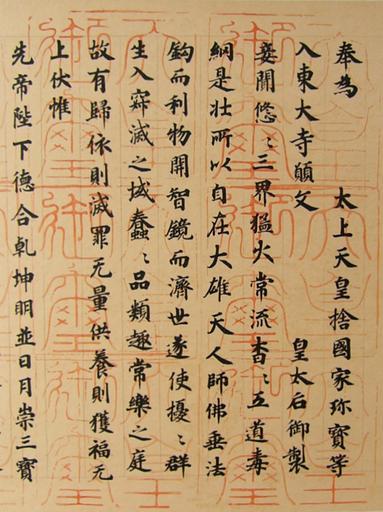 奉為　太上天皇捨國家珎寶等
入東大寺願文　皇太后御製
妾聞悠々三界猛火常流杳々五道毒
網是壮所以自在大雄天人師佛垂法
鈎而利物開智鏡而濟世遂使擾々群
生入寂滅之域蠢々品類趣常樂之庭
故有歸依則滅罪无量供養則獲福无
上伏惟
先帝陛下德合乾坤明並日月崇三寶